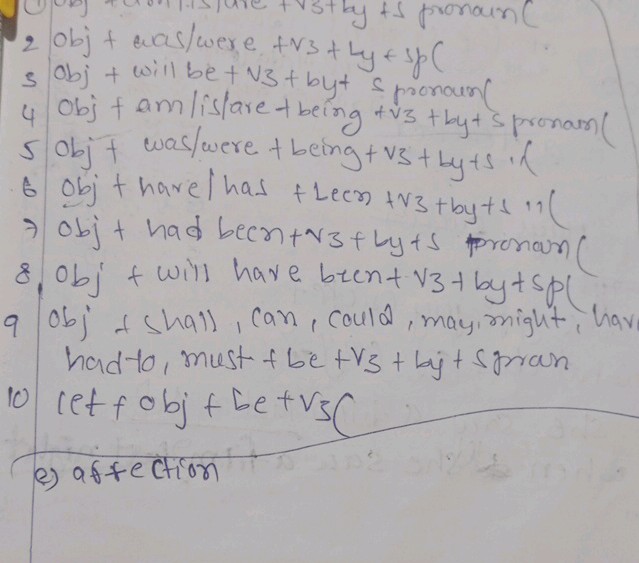 1 obj + am/is/are + V3 + by + s pronoun (
2 Obj + was/were + V3 + by + sp (
3 Obj + will be + V3 + by + s pronoun (
4 Obj + am/is/are + being + V3 + by + s pronoun (
5 Obj + was/were + being + V3 + by + s .. (
6 Obj + have/has + been + V3 + by + s 11 (
7 Obj + had been + V3 + by + s pronoun (
8. Obj + will have been + V3 + by + sp (
9 Obj + shall, can, could, may, might, hav
had to, must + be + V3 + by + s pron
10 let + obj + be + V3 (
e) affection